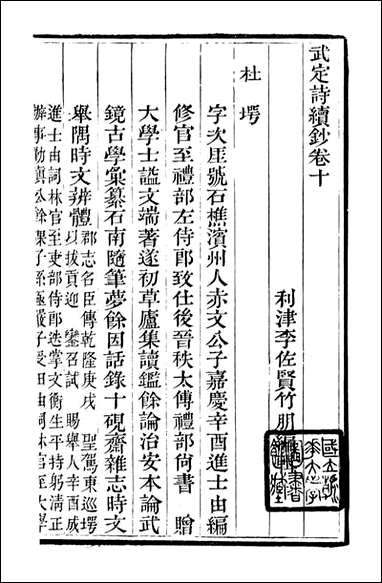 武定詩續鈔卷十
利津李佐賢竹朋
杜堮
字次厓號石樵濱州人亦文公子嘉慶辛酉進士由編
修官至禮部左侍郎致仕後晉秩太傅禮部尚書 贈
大學士諡文端著遂初草廬集讀鑑餘論治安本論武
鏡古學彙纂石南隨筆夢餘因話錄十硯齋雜志時文
舉隅時文辨體郡志名臣傳乾隆庚戌 聖駕東巡堮
以拔貢迎 鑾召試 賜舉人辛酉成
進士由詞林官至吏部侍郎迭掌文衡生平持躬清正
辦事勤慎公餘課子孫極嚴子受田由詞林官至大學